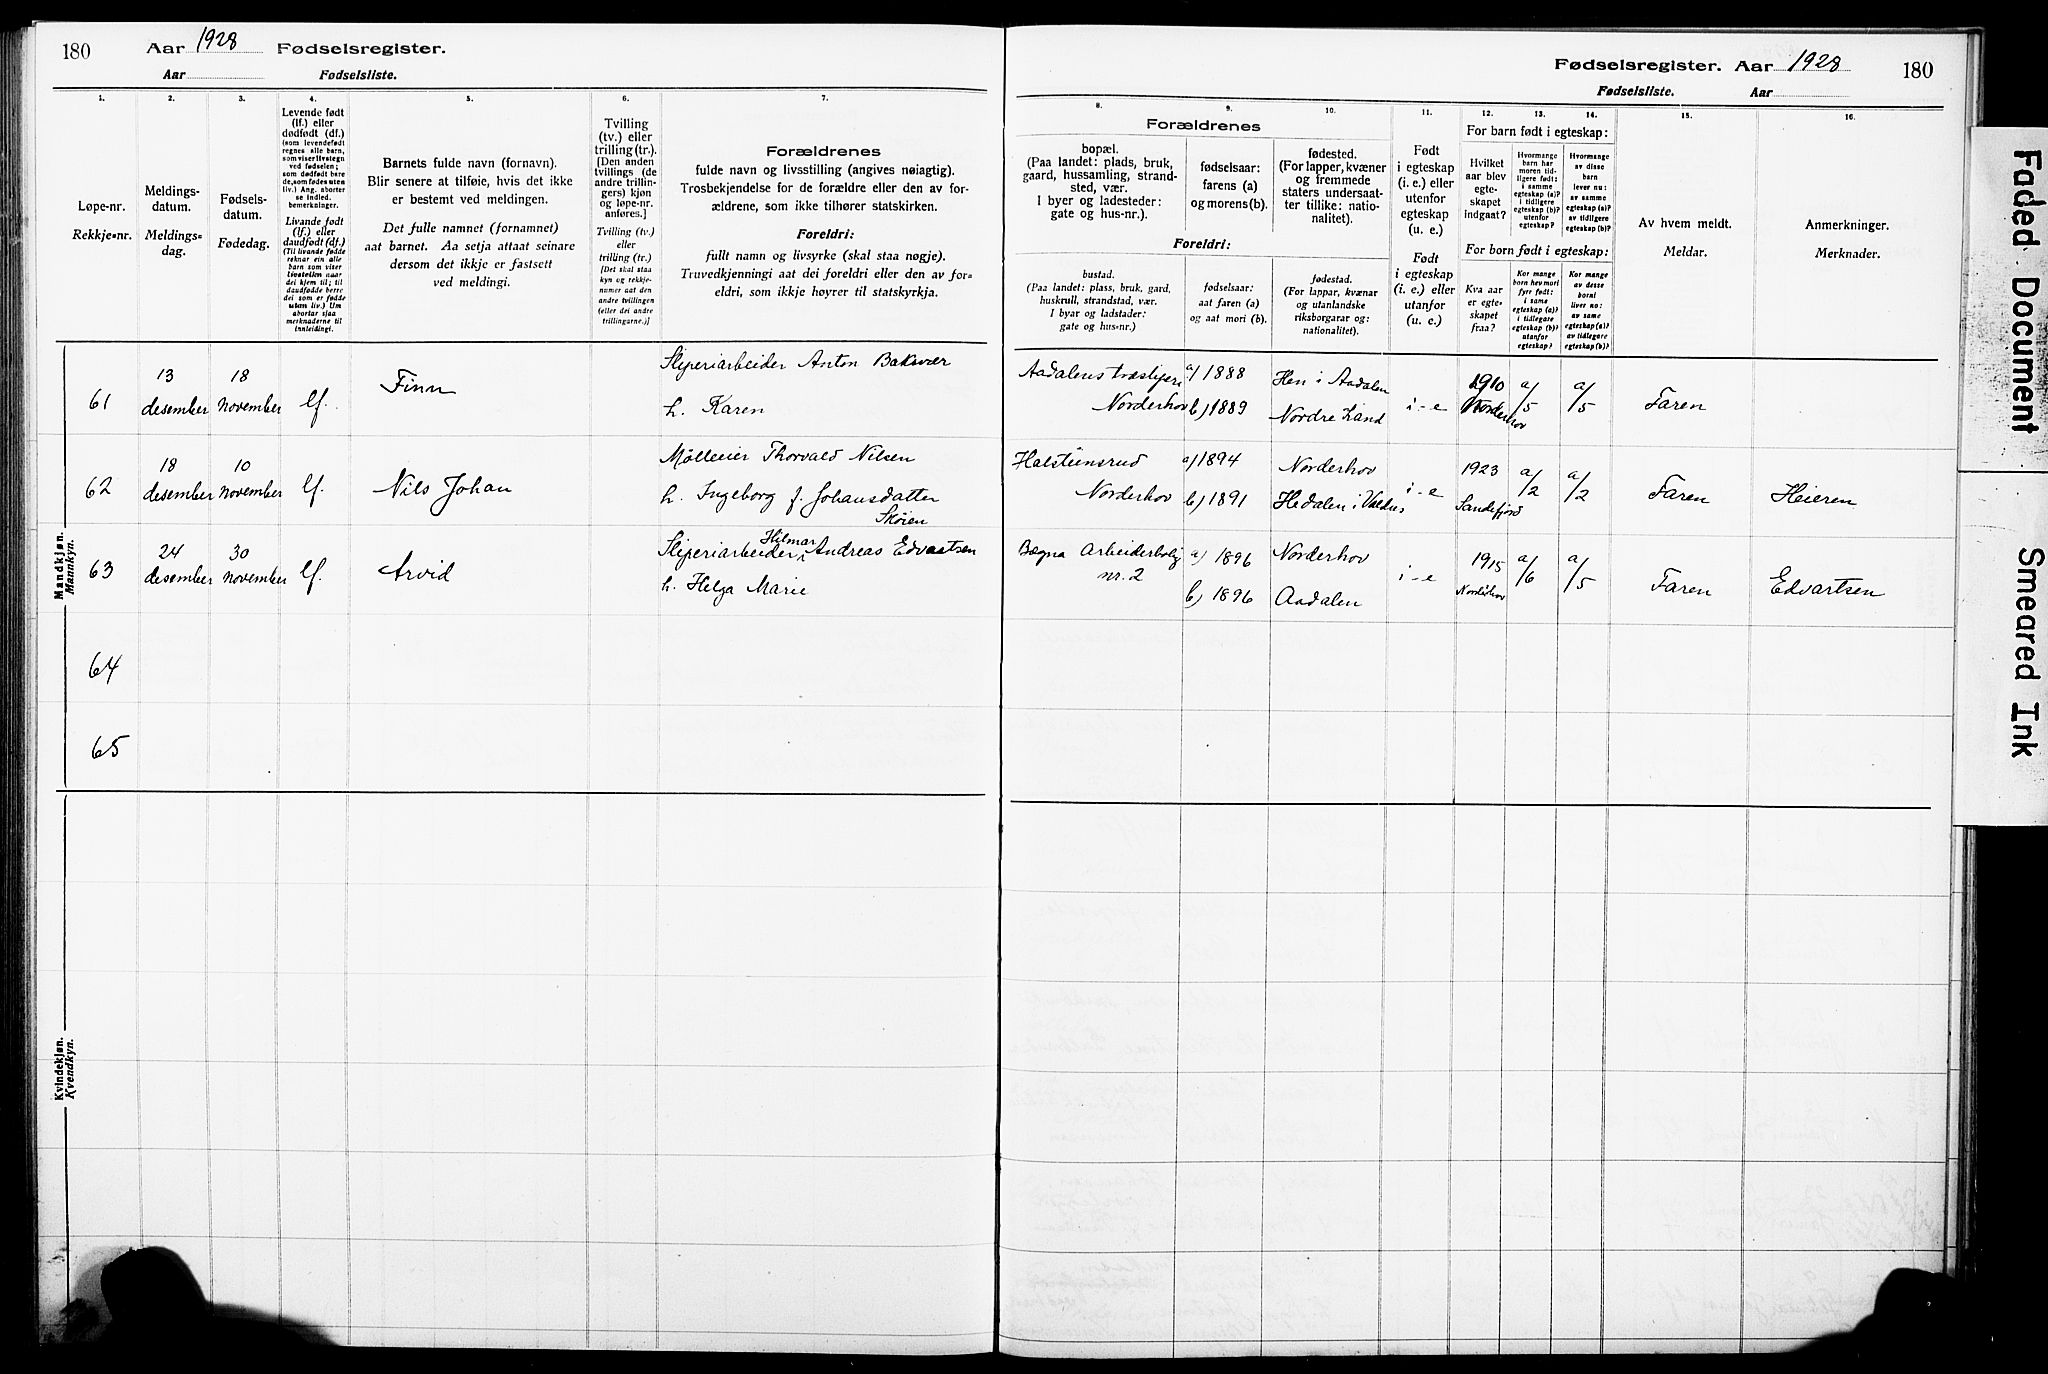 180 Aar 1928 Fødselsregister.
Aar Fødselsliste.
1.
Løpe-nr.
Rekkje=nr.
2.
Meldings-
datum.
Meldings=
dag.
3.
Fødsels-
datum.
Fødedag.
4.
Levende født
(lf.) eller
dødfødt (df.)
(som levendefødt
regnes alle barn,
som viser livstegn
ved fødselen;
som dødfødt bare
de, som fødes uten
liv.) Ang. aborter
se indled.
bemerkninger.
Livande født
(lf.) eller
daudfødt (df.)
(Til livande fødde
reknar ein alle
barn som viser
livsteikn naar
dei kjem til; til
daudfødde berre
dei som er fødde
utan liv.) Um
abortar sjaa
merknaderne til
innleidingi.
5.
Barnets fulde navn (fornavn).
Blir senere at tilføie, hvis det ikke
er bestemt ved meldingen.
Det fulle namnet (fornamnet)
aat barnet. Aa setja attaat seinare
dersom det ikkje er fastsett
ved meldingi.
6.
Tvilling
(tv.) eller
trilling (tr.).
[Den anden
tvillings (de
andre trillin-
gers) kjøn
og løpe-nr.
anføres.]
Tvilling (tv.)
eller
trilling (tr.)
[Det skal staa
kyn og rekkje-
numer aat den
andre tvillingen
(eller dei andre
trillingarne.)]
7.
Forældrenes
fulde navn og livsstilling (angives nøiagtig).
Trosbekjendelse for de forældre eller den av for-
ældrene, som ikke tilhører statskirken.
Foreldri:
fullt namn og livsyrke (skal staa nøgje).
Truvedkjenningi aat dei foreldri eller den av for=
eldri, som ikkje høyrer til statskyrkja.
Mandkjøn.
Mannkyn.
61
13
desember
18
november
lf.
Finn
Sliperiarbeider Anton Baksvær
h. Karen
62
18
desember
10
november
lf.
Nils Johan
Mølleeier Thorvald Nilsen
h. Ingeborg f. Johansdatter
Skøien
63
24
desember
30
november
lf.
Arvid
Hilmar
Sliperiarbeider Andreas Edvartsen
h. Helga Marie
64
65
Kvindekjøn.
Kvendkyn.
Fødselsregister. Aar 1928 180
Fødselsliste. Aar
8.
Forældrenes
bopæl.
(Paa landet: plads, bruk,
gaard, hussamling, strand-
sted, vær.
I byer og ladesteder:
gate og hus-nr.).
Foreldri:
bustad.
(Paa landet: plass, bruk, gard,
huskrull, strandstad, vær.
I byar og ladstader:
gate og hus=nr.)
9.
fødselsaar:
farens (a)
og morens(b).
fødselsaar:
aat faren (a)
og aat mori (b).
10.
fødested.
(For lapper, kvæner
og fremmede
staters undersaat-
ter tillike: natio-
nalitet).
fødestad.
(For lappar, kvænar
og utanlandske
riksborgarar og:
nationalitet).
11.
Født
i egteskap
(i. e.) eller
utenfor
egteskap
(u. e.)
Født
i egteskap
(i. e.) eller
utanfor
egteskap
(u. e.)
12. 13. 14.
For barn født i egteskap:
Hvilket
aar blev
egte-
skapet
indgaat?
Hvormange
barn har
moren tid-
ligere født:
i samme
egteskap (a)?
i tidligere
egteskap (b)?
utenfor
egteskap?
Hvormange
av disse
barn
lever nu:
av samme
egteskap (a)?
av tidligere
egteskap (b)?
For born født i egteskap:
Kva aar
er egte-
skapet
fraa?
Kor mange
born hev mori
fyrr født:
i same
egteskap (a)?
i tidlegare
egteskap (b)?
utanfor
egteskap?
Kor mange
av desse
borni
liver no:
av same
egteskap (a)?
av tidlegare
egteskap (b)?
15.
Av hvem meldt.
Meldar.
16.
Anmerkninger.
Merknader.
Aadalens træsliperi
Norderhov
a) 1888
b) 1889
Hen i Aadalen
Nordre Land
i - e
1910
Norderhov
a/5
a/5
Faren
Halsteinsrud
Norderhov
a) 1894
b) 1891
Norderhov
Hedalen i Valdres
i - e
1923
Sandefjord
a/2
a/2
Faren
Heieren
Bægna Arbeiderbolig
nr. 2
a) 1896
b) 1896
Norderhov
Aadalen
i - e
1915
Norderhov
a/6
a/5
Faren
Edvartsen
Faded Document
Smeared Ink